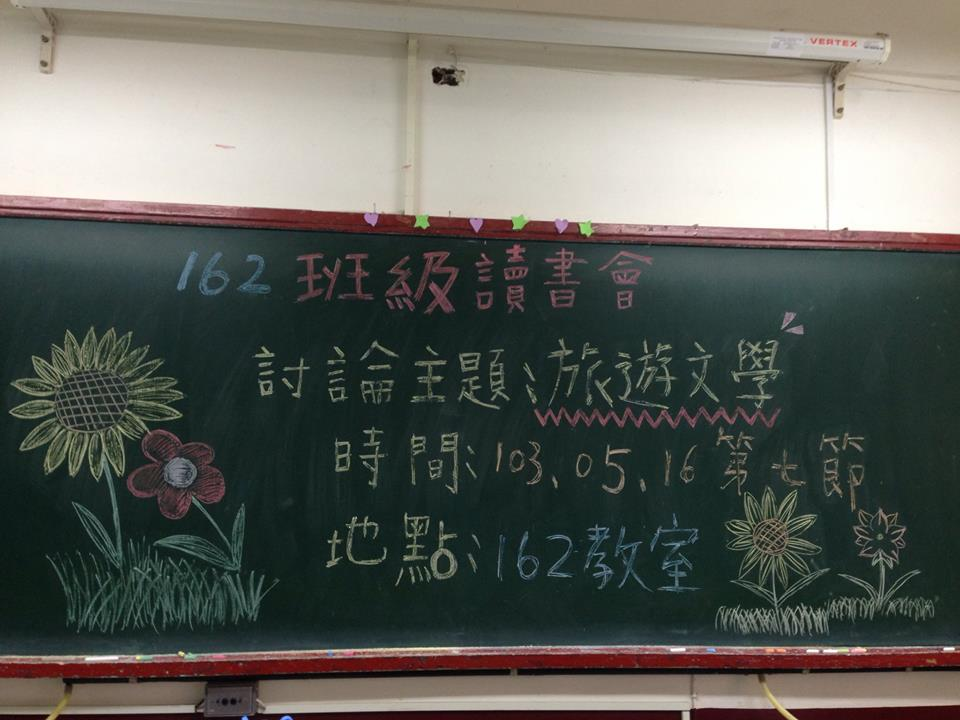 VERTEX
162 班級讀書會
討論主題:旅遊文學
時間:103.05.16 第七節
地點:162教室